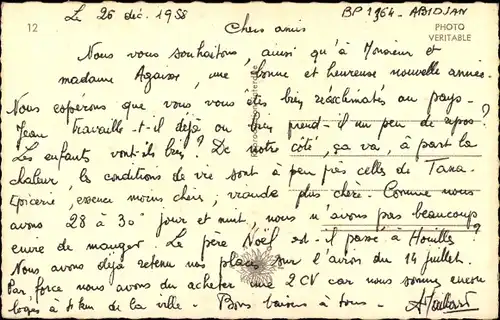 Le 26 déc. 1958
BP 1364 - ABIDJAN
12
Chers amis
PHOTO
VERITABLE
Nous vous souhaitons, ainsi qu'à Monsieur et
madame Agaisse, une bonne et heureuse nouvelle année.
Nous espérons que vous vous êtes bien réacclimatés au pays -
Jean travaille-t-il déjà ou bien prend-il un peu de repos?
Les enfants vont-ils bien? De notre côté, ça va, à part la
chaleur, les conditions de vie sont à peu près celles de Tana.
Epicerie, essence moins chers; viande plus chère. Comme nous
avons 28 à 30° jour et nuit, nous n'avons pas beaucoup
envie de manger. Le père Noël est-il passé à Houilles?
Nous avons déjà retenu nos places sur l'avion du 14 juillet.
Par force nous avons du acheter une 2 CV car nous sommes encore
logés à 4 km de la ville - Bons baisers à tous -